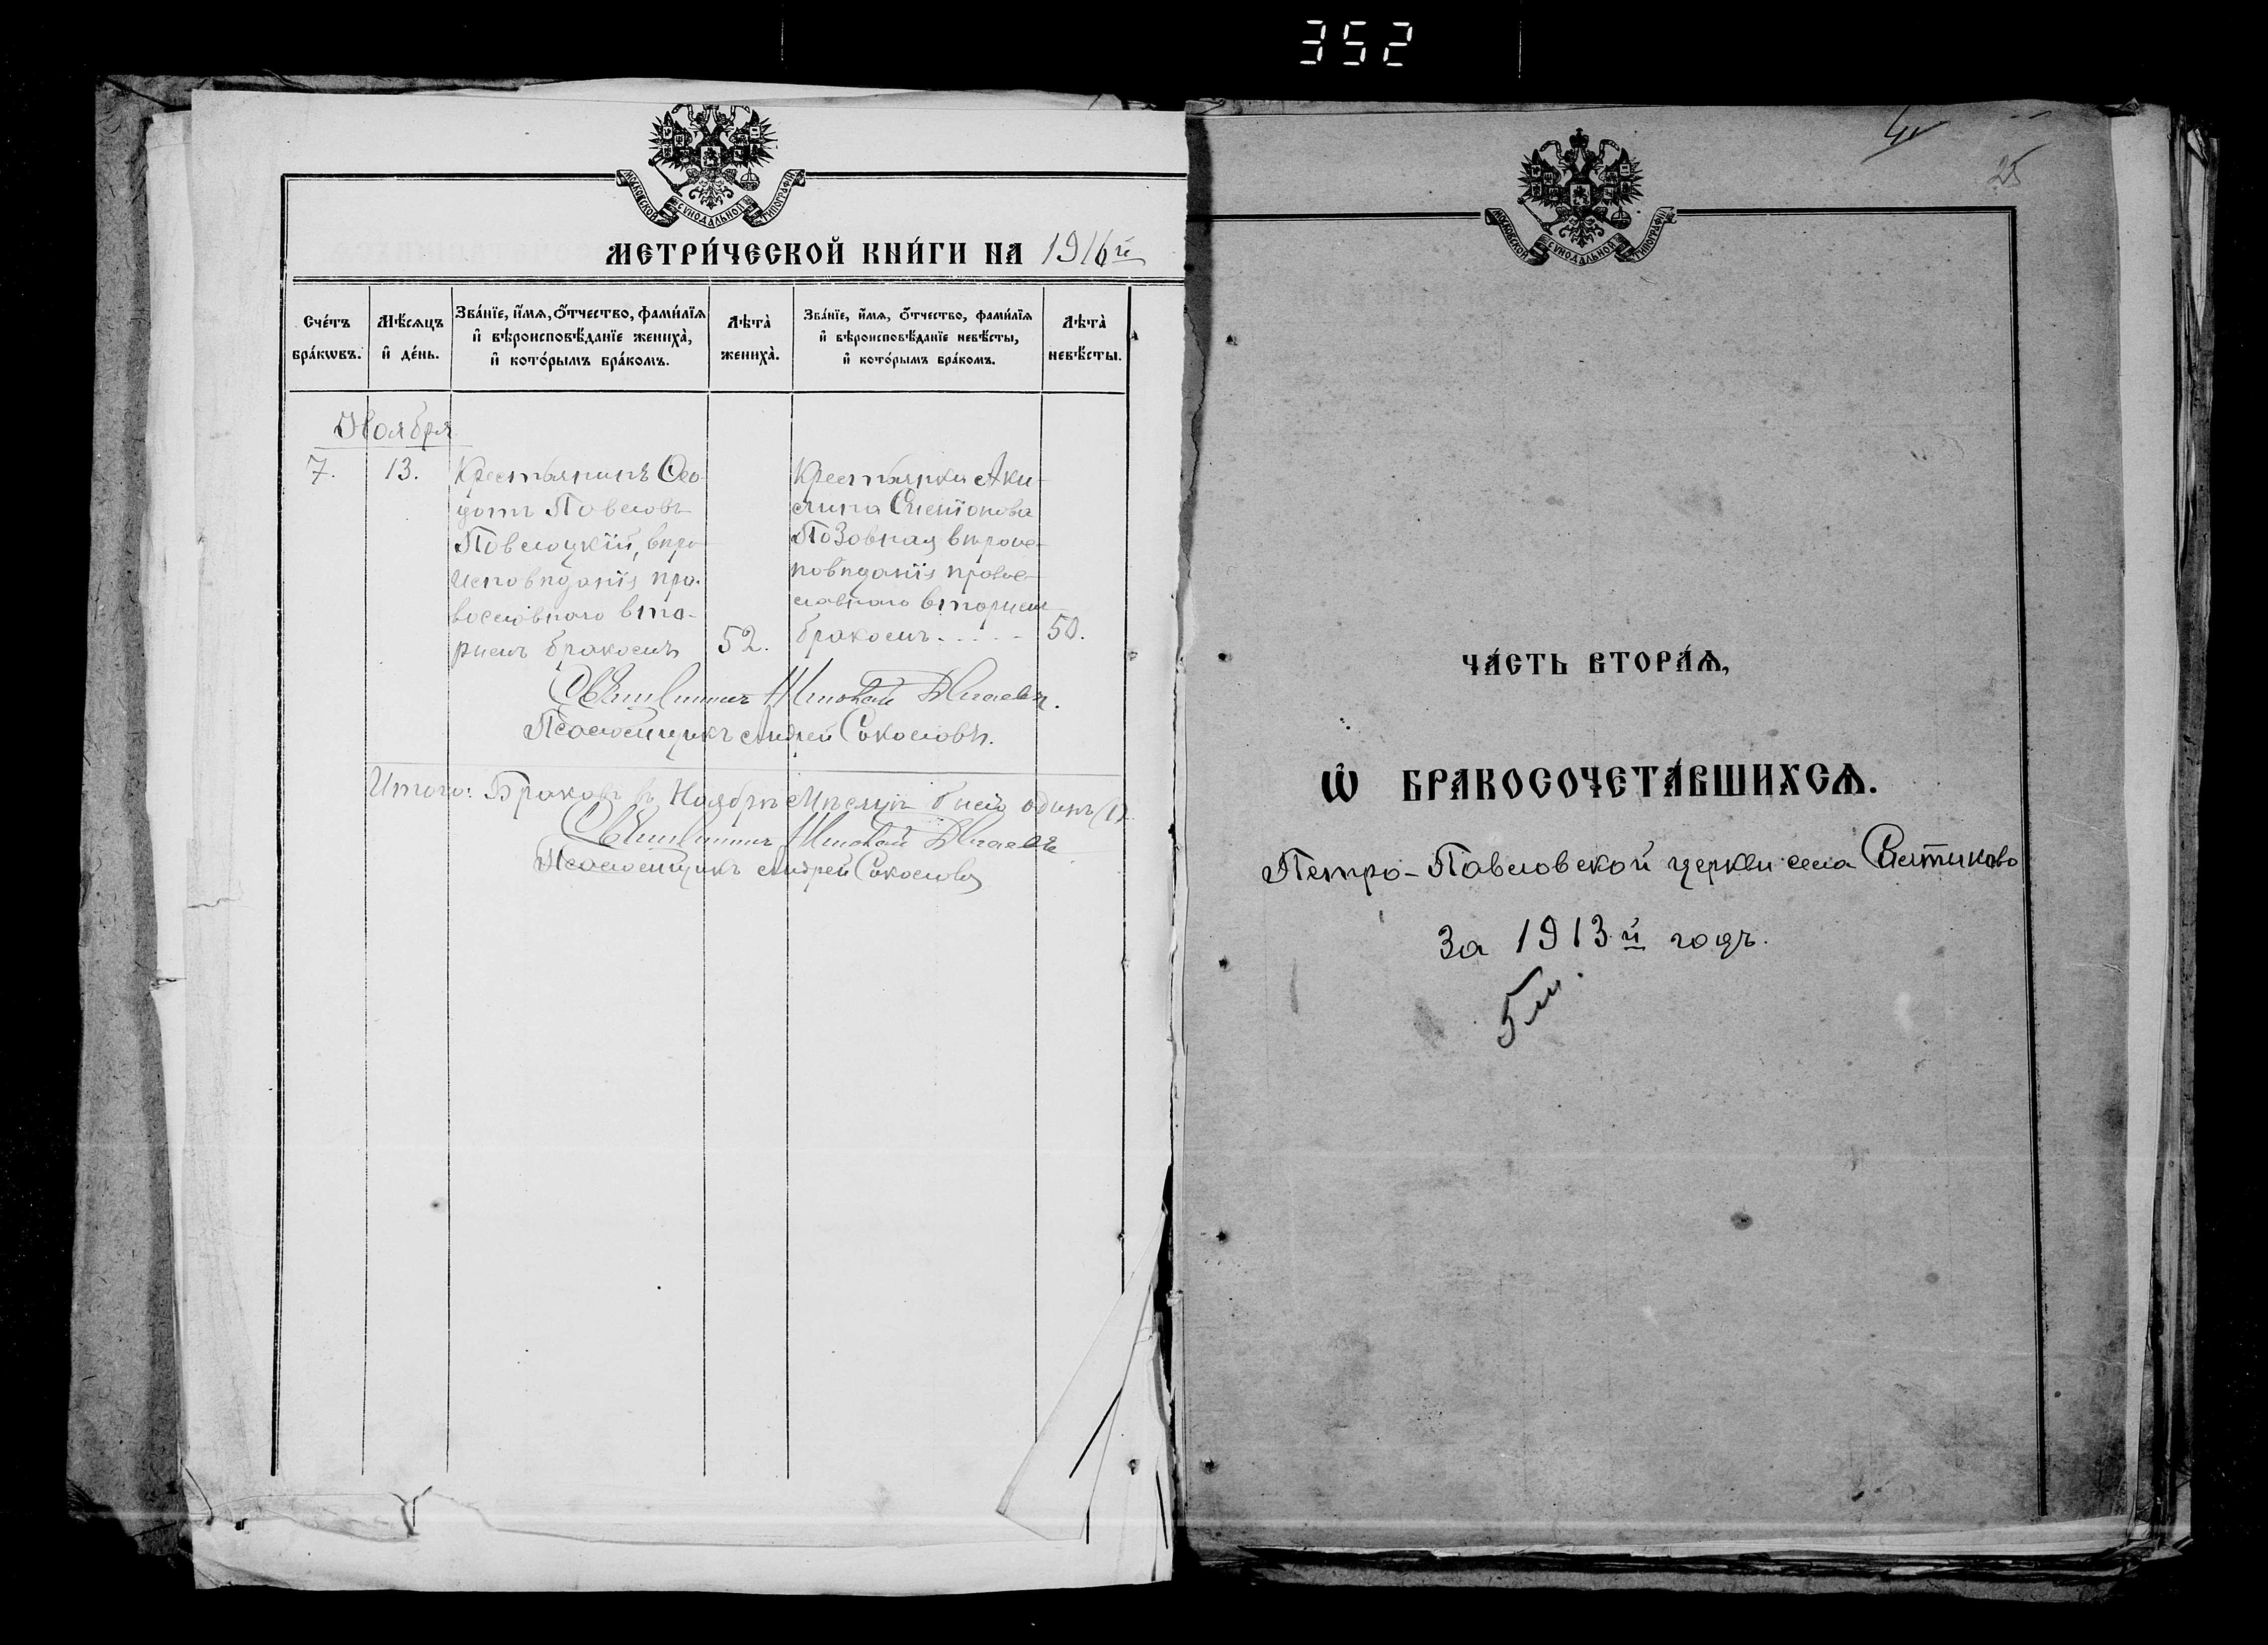 352
МОСКОВСКОЙ СѴНОДАЛЬНОЙ ТИПОГРАФІИ
МЕТРИ́ЧЕСКОЙ КНИ́ГИ НА 1916й
Сче́тъ бра́кѡвъ.
Мѣ́сяцъ и҆ де́нь.
Зва́нїе, и҆́мя, ѻ҆́тчество, фами́лїя
и҆ вѣроисповѣ́данїе жениха̀,
и҆ кото́рымъ бра́комъ.
Лѣта̀ жениха̀.
Зва́нїе, и҆́мя, ѻ҆́тчество, фами́лїя
и҆ вѣроисповѣ́данїе невѣ́сты,
и҆ кото́рымъ бра́комъ.
Лѣта̀ невѣ́сты.
Ноября
7. 13.
Крестьянинъ Ѳео-
дотъ Павловъ
Павлоцкій, вѣро-
исповѣданія пра-
вославнаго вто-
рымъ бракомъ 52.
Крестьянка Аки-
лина Симіонова
Позовная вѣроис-
повѣданія правос-
лавнаго вторымъ
бракомъ 50.
Священникъ Николай
Псаломщикъ Андрей Соколовъ.
Итого: Браковъ въ Ноябрѣ мѣсяцѣ былъ одинъ (1)
Священникъ Николай
Псаломщикъ Андрей Соколовъ
25
МОСКОВСКОЙ СѴНОДАЛЬНОЙ ТИПОГРАФІИ
ЧА́СТЬ ВТОРА́Ѧ,
Ѽ БРАКОСОЧЕТА́ВШИХСѦ.
Петро-Павловской церкви села
За 1913й годъ.